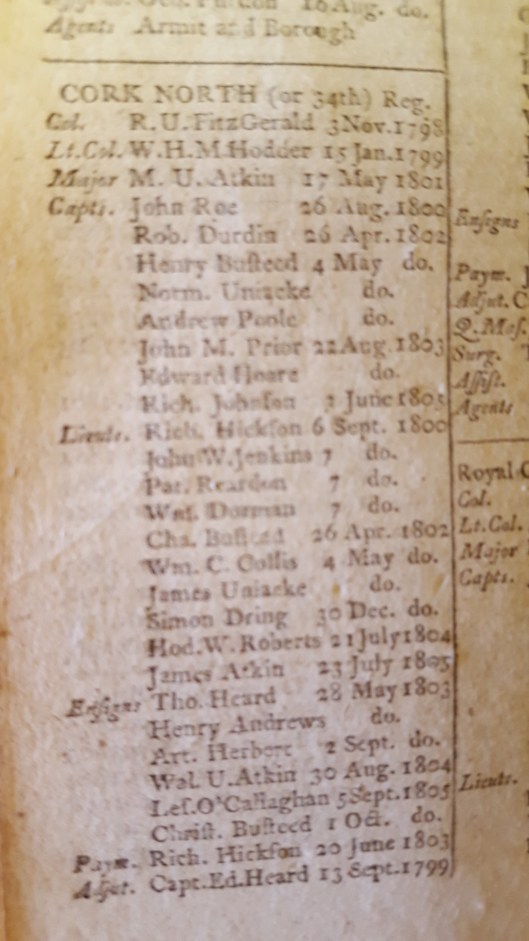 16 Aug. do.
Agents Armit and Borough
CORK NORTH (or 34th) Reg.
Col. R. U. FitzGerald 3 Nov. 1798
Lt. Col. W. H. M. Hodder 15 Jan. 1799
Major M. U. Atkin 17 May 1801
Capts. John Roe 26 Aug. 1800
Rob. Durdin 26 Apr. 1802
Henry Buſteed 4 May do.
Norm. Uniacke do.
Andrew Poole do.
John M. Prior 22 Aug. 1803
Edward Hoare do.
Rich. Johnſon 1 June 1805
Lieuts. Rich. Hickſon 6 Sept. 1800
John W. Jenkins 7 do.
Pat. Reardon 7 do.
Wm. Dorman 7 do.
Cha. Buſteed 26 Apr. 1802
Wm. C. Collis 4 May do.
James Uniacke do.
Simon Dring 30 Dec. do.
Hod. W. Roberts 21 July 1804
James Atkin 23 July 1805
Enſigns Tho. Heard 28 May 1803
Henry Andrews do.
Art. Herbert 2 Sept. do.
Wal. U. Atkin 30 Aug. 1804
Leſ. O'Callaghan 5 Sept. 1805
Chriſt. Buſteed 1 Oct. do.
Paym. Rich. Hickſon 20 June 1803
Adjut. Capt. Ed. Heard 13 Sept. 1799
Enſigns
Paym.
Adjut. C
Q. Maſ.
Surg.
Aſſiſt.
Agents
Royal C
Col.
Lt. Col.
Major
Capts.
Lieuts.